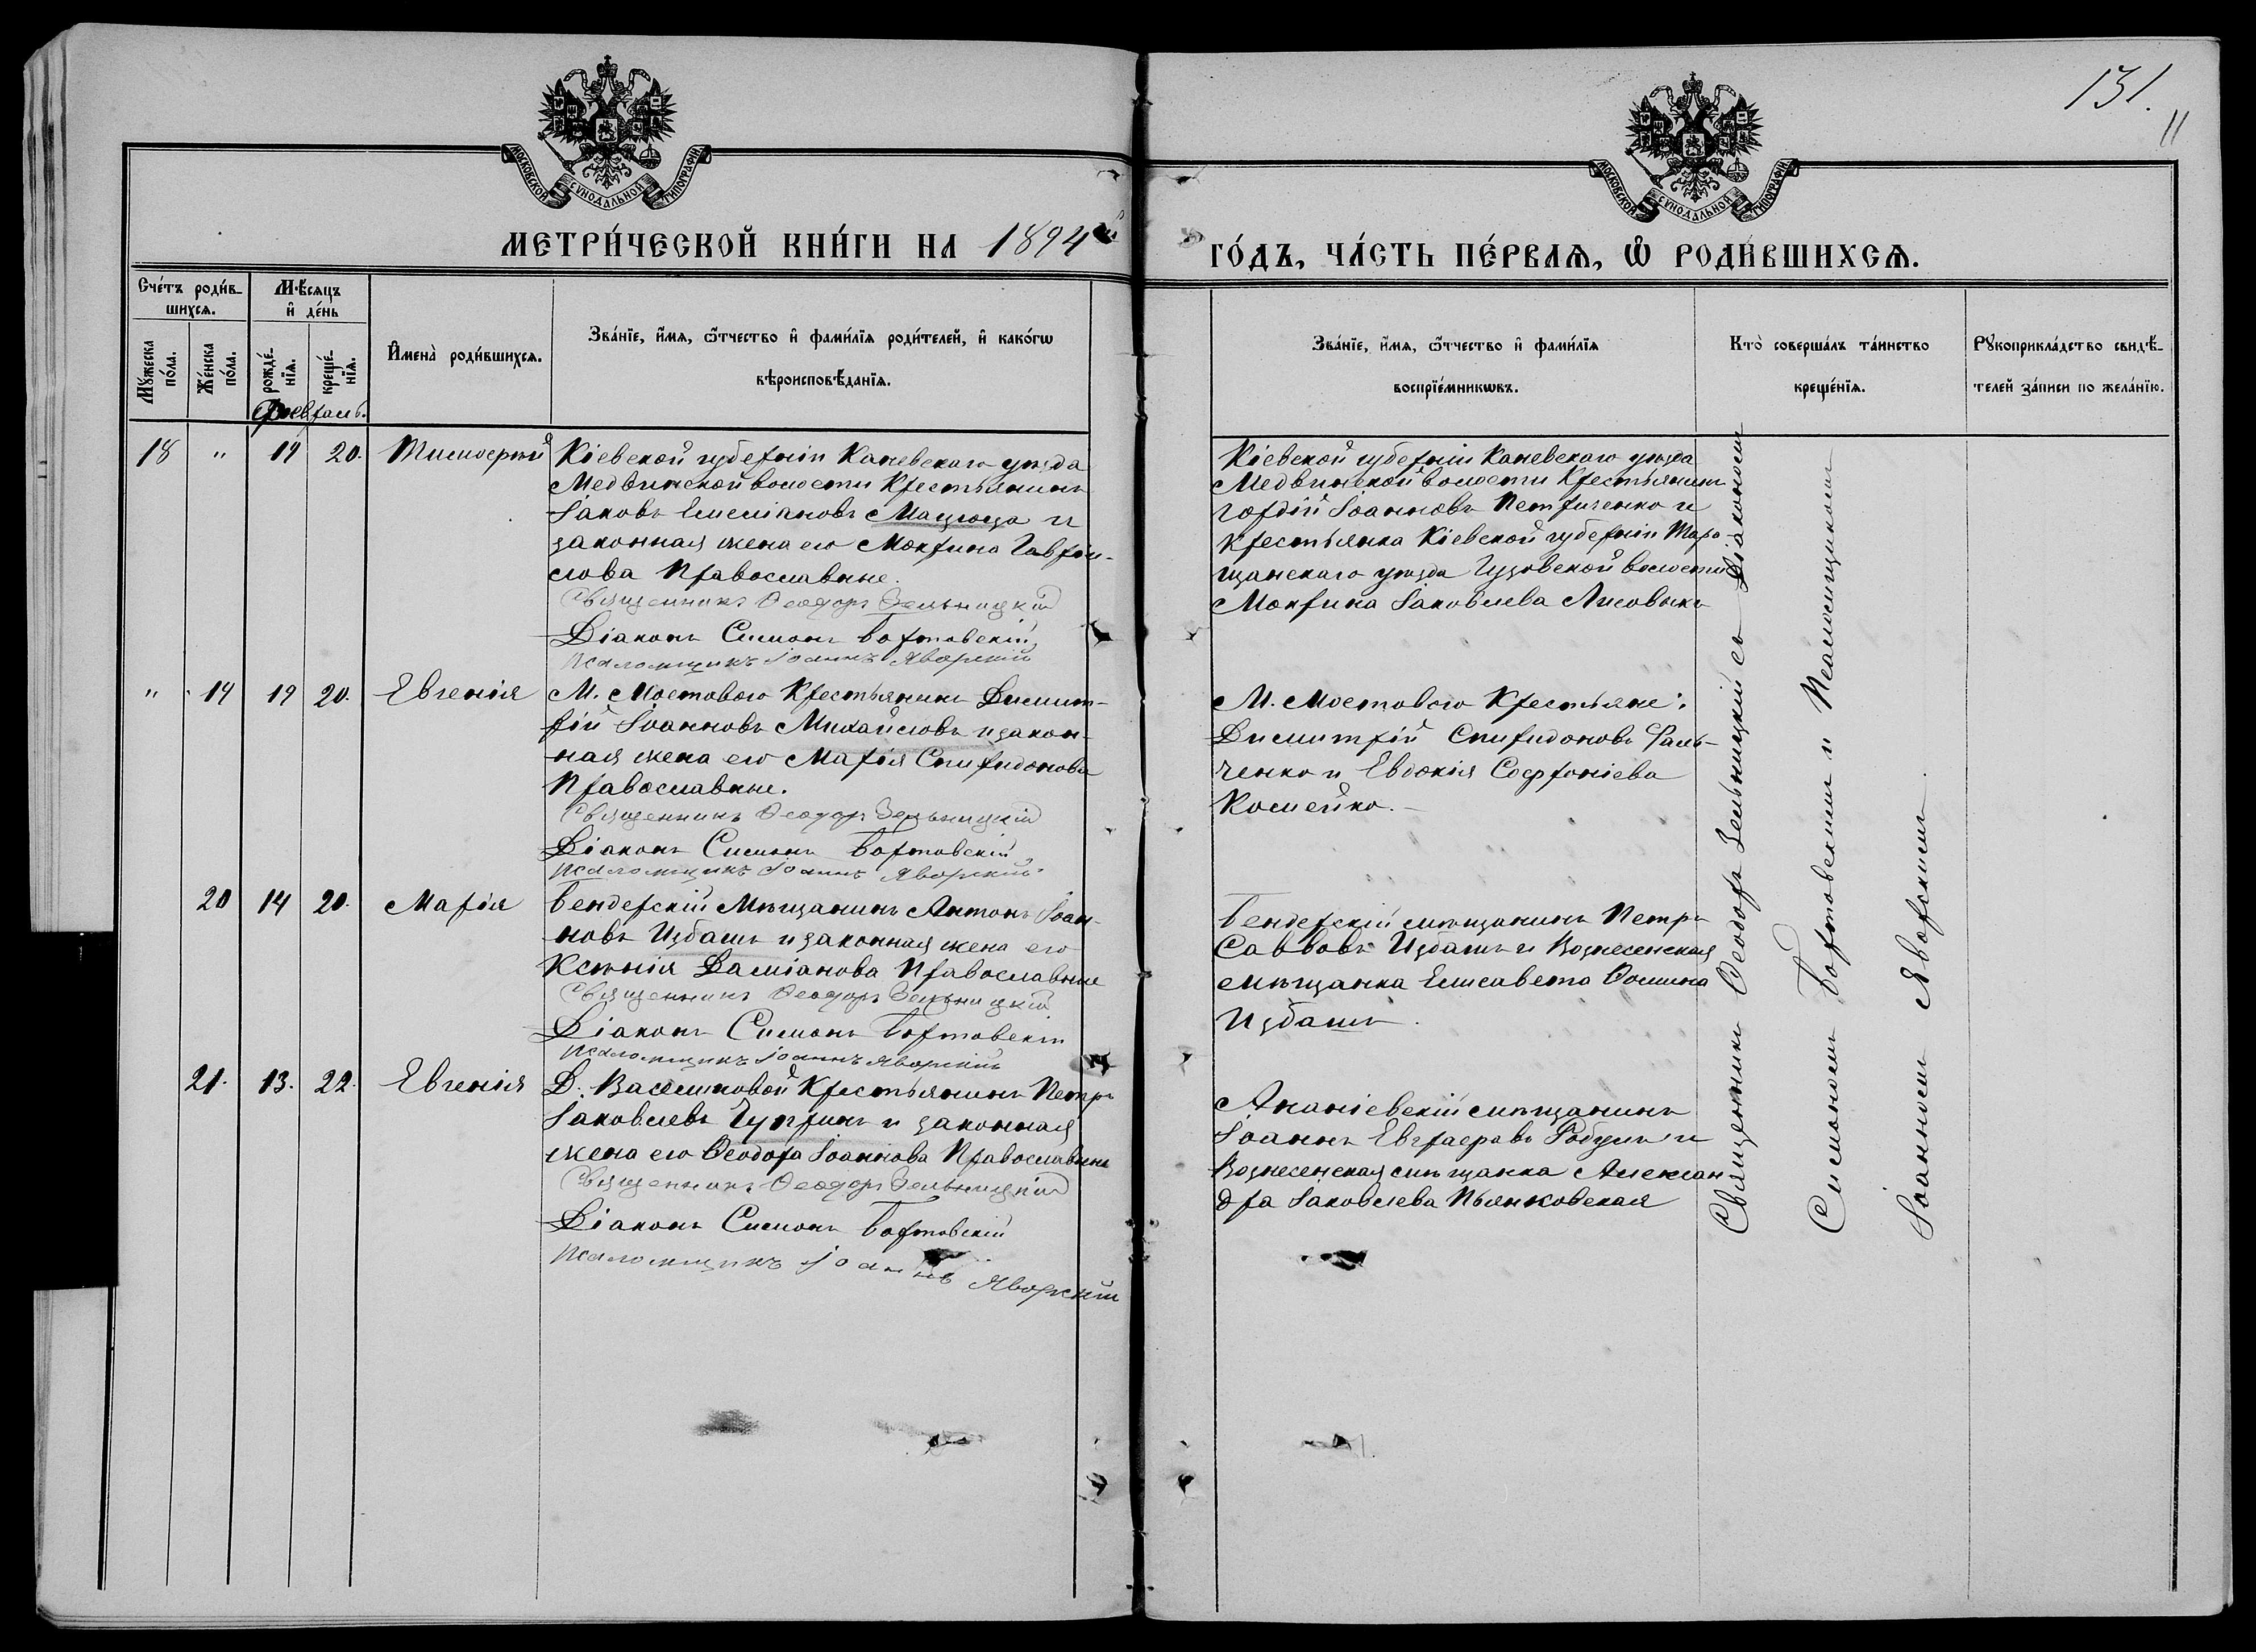 131.
11
МОСКОВСКОЙ СѴНОДАЛЬНОЙ ТИПОГРАФІИ
МОСКОВСКОЙ СѴНОДАЛЬНОЙ ТИПОГРАФІИ
МЕТРИ́ЧЕСКОЙ КНИ́ГИ НА 1894й
ГО́ДЪ, ЧА́СТЬ ПЕ́РВАѦ, Ѡ҆ РОДИ́ВШИХСѦ.
Сче́тъ роди́в-
шихсѧ.
Мѣ́сѧцъ
и҆ де́нь
Мꙋ́жеска по́ла.
Же́нска по́ла.
рожде́-
нїѧ.
креще́-
нїѧ.
И҆мена̀ роди́вшихсѧ.
Зва́нїе, и҆́мѧ, ѻ҆́тчество и҆ фами́лїѧ роди́телей, и҆ како́гѡ
вѣроисповѣ́данїѧ.
Зва́нїе, и҆́мѧ, ѻ҆́тчество и҆ фами́лїѧ
воспрїе́мникѡвъ.
Кто̀ соверша́лъ та́инство
креще́нїѧ.
Рꙋкоприкла́дство свидѣ́-
телей за́писи по жела́нїю.
Февраль.
18 " 19 20. Тимоѳей Кіевской губерніи Каневскаго уѣзда
Медвинской волости Крестьянинъ
Іаковъ Емеліановъ Мацюца и
законная жена его Мокрина Гавріи-
лова Православные.
Священникъ Ѳеодоръ Зельницкій
Діаконъ Симонъ Бортовскій
Псаломщикъ Іоаннъ Яворскій
Кіевской губерніи Каневскаго уѣзда
Медвинской волости Крестьянинъ
Гордій Іоанновъ Петриченко и
Крестьянка Кіевской губерніи Тара-
щанскаго уѣзда волости
Мокрина Іаковлева Лисовыкъ
" 19 19 20. Евгенія М. Мостового Крестьянинъ Димит-
рій Іоанновъ Михайловъ и закон-
ная жена его Марія Спиридонова
Православные.
Священникъ Ѳеодоръ Зельницкій
Діаконъ Симонъ Бортовскій
Псаломщикъ Іоаннъ Яворскій
М. Мостового Крестьяне:
Димитрій Спиридоновъ Галь-
ченко и Евдокія Софроніева
Коменко.
20 14 20. Марія Бендерскій Мѣщанинъ Антонъ Іоан-
новъ Избашъ и законная жена его
Ксенія Даміанова Православные
Священникъ Ѳеодоръ Зельницкій
Діаконъ Симонъ Бортовскій
Псаломщикъ Іоаннъ Яворскій
Бендерскій мѣщанинъ Петръ
Саввовъ Избашъ и Вознесенская
мѣщанка Елисавета Ѳомина
Избашъ.
21. 13. 22. Евгенія Д. Василиковой Крестьянинъ Петръ
Іаковлевъ Чупринъ и законная
жена его Ѳеодора Іоаннова Православные
Священникъ Ѳеодоръ Зельницкій
Діаконъ Симонъ Бортовскій
Псаломщикъ Іоаннъ Яворскій
Ананіевскій мѣщанинъ
Іоаннъ Евграфовъ Робулъ и
Вознесенская мѣщанка Алексан-
дра Іаковлева Пьянковская
Священникъ Ѳеодоръ Зельницкій съ Діакономъ
Симономъ Бортовскимъ и Псаломщикомъ
Іоанномъ Яворскимъ.